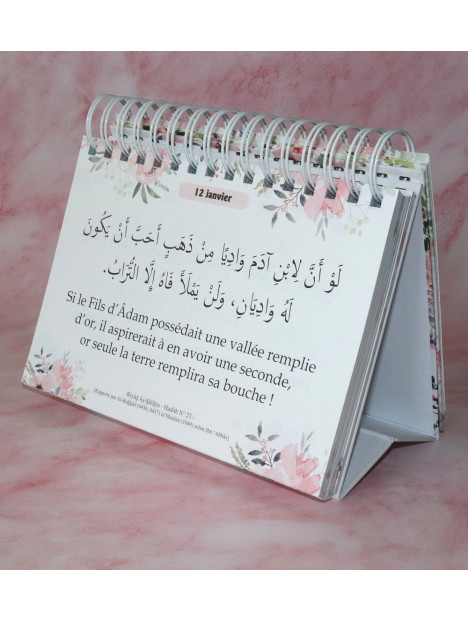 12 janvier
لَوْ أَنَّ لِابْنِ آدَمَ وَادِيًا مِنْ ذَهَبٍ أَحَبَّ أَنْ يَكُونَ
لَهُ وَادِيَانِ، وَلَنْ يَمْلَأَ فَاهُ إِلَّا التُّرَابُ.
Si le Fils d'Âdam possédait une vallée remplie
d'or, il aspirerait à en avoir une seconde,
or seule la terre remplira sa bouche !
Riyâḍ Aṣ-Ṣâliḥîn - Hadith N° 23 -